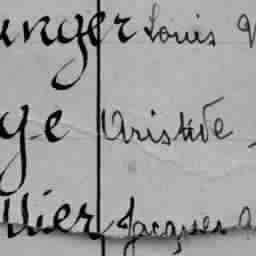 unger Louis
ge Aristide
llier Jacques